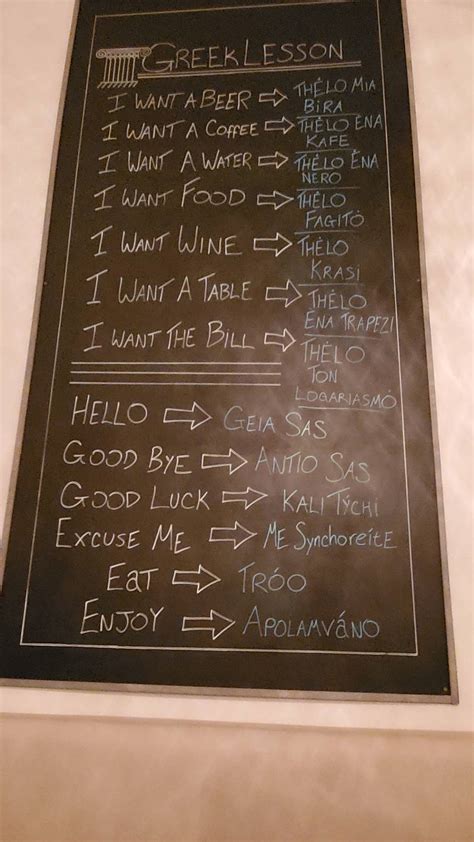 GREEK LESSON
I WANT A BEER ⇨ THÉLO MIA
BIRA
I WANT A COFFEE ⇨ THÉLO ÉNA
KAFE
I WANT A WATER ⇨ THÉLO ÉNA
NERO
I WANT FOOD ⇨ THÉLO
FAGITÓ
I WANT WINE ⇨ THÉLO
KRASÍ
I WANT A TABLE ⇨ THÉLO
ÉNA TRAPEZI
I WANT THE BILL ⇨ THÉLO
TON
LOGARIASMÓ
HELLO ⇨ GEIA SAS
GOOD BYE ⇨ ANTIO SAS
GOOD LUCK ⇨ KALI TÝCHI
EXCUSE ME ⇨ ME SynchoreítE
EaT ⇨ TRÓO
ENJOY ⇨ APOLAMVÁNO